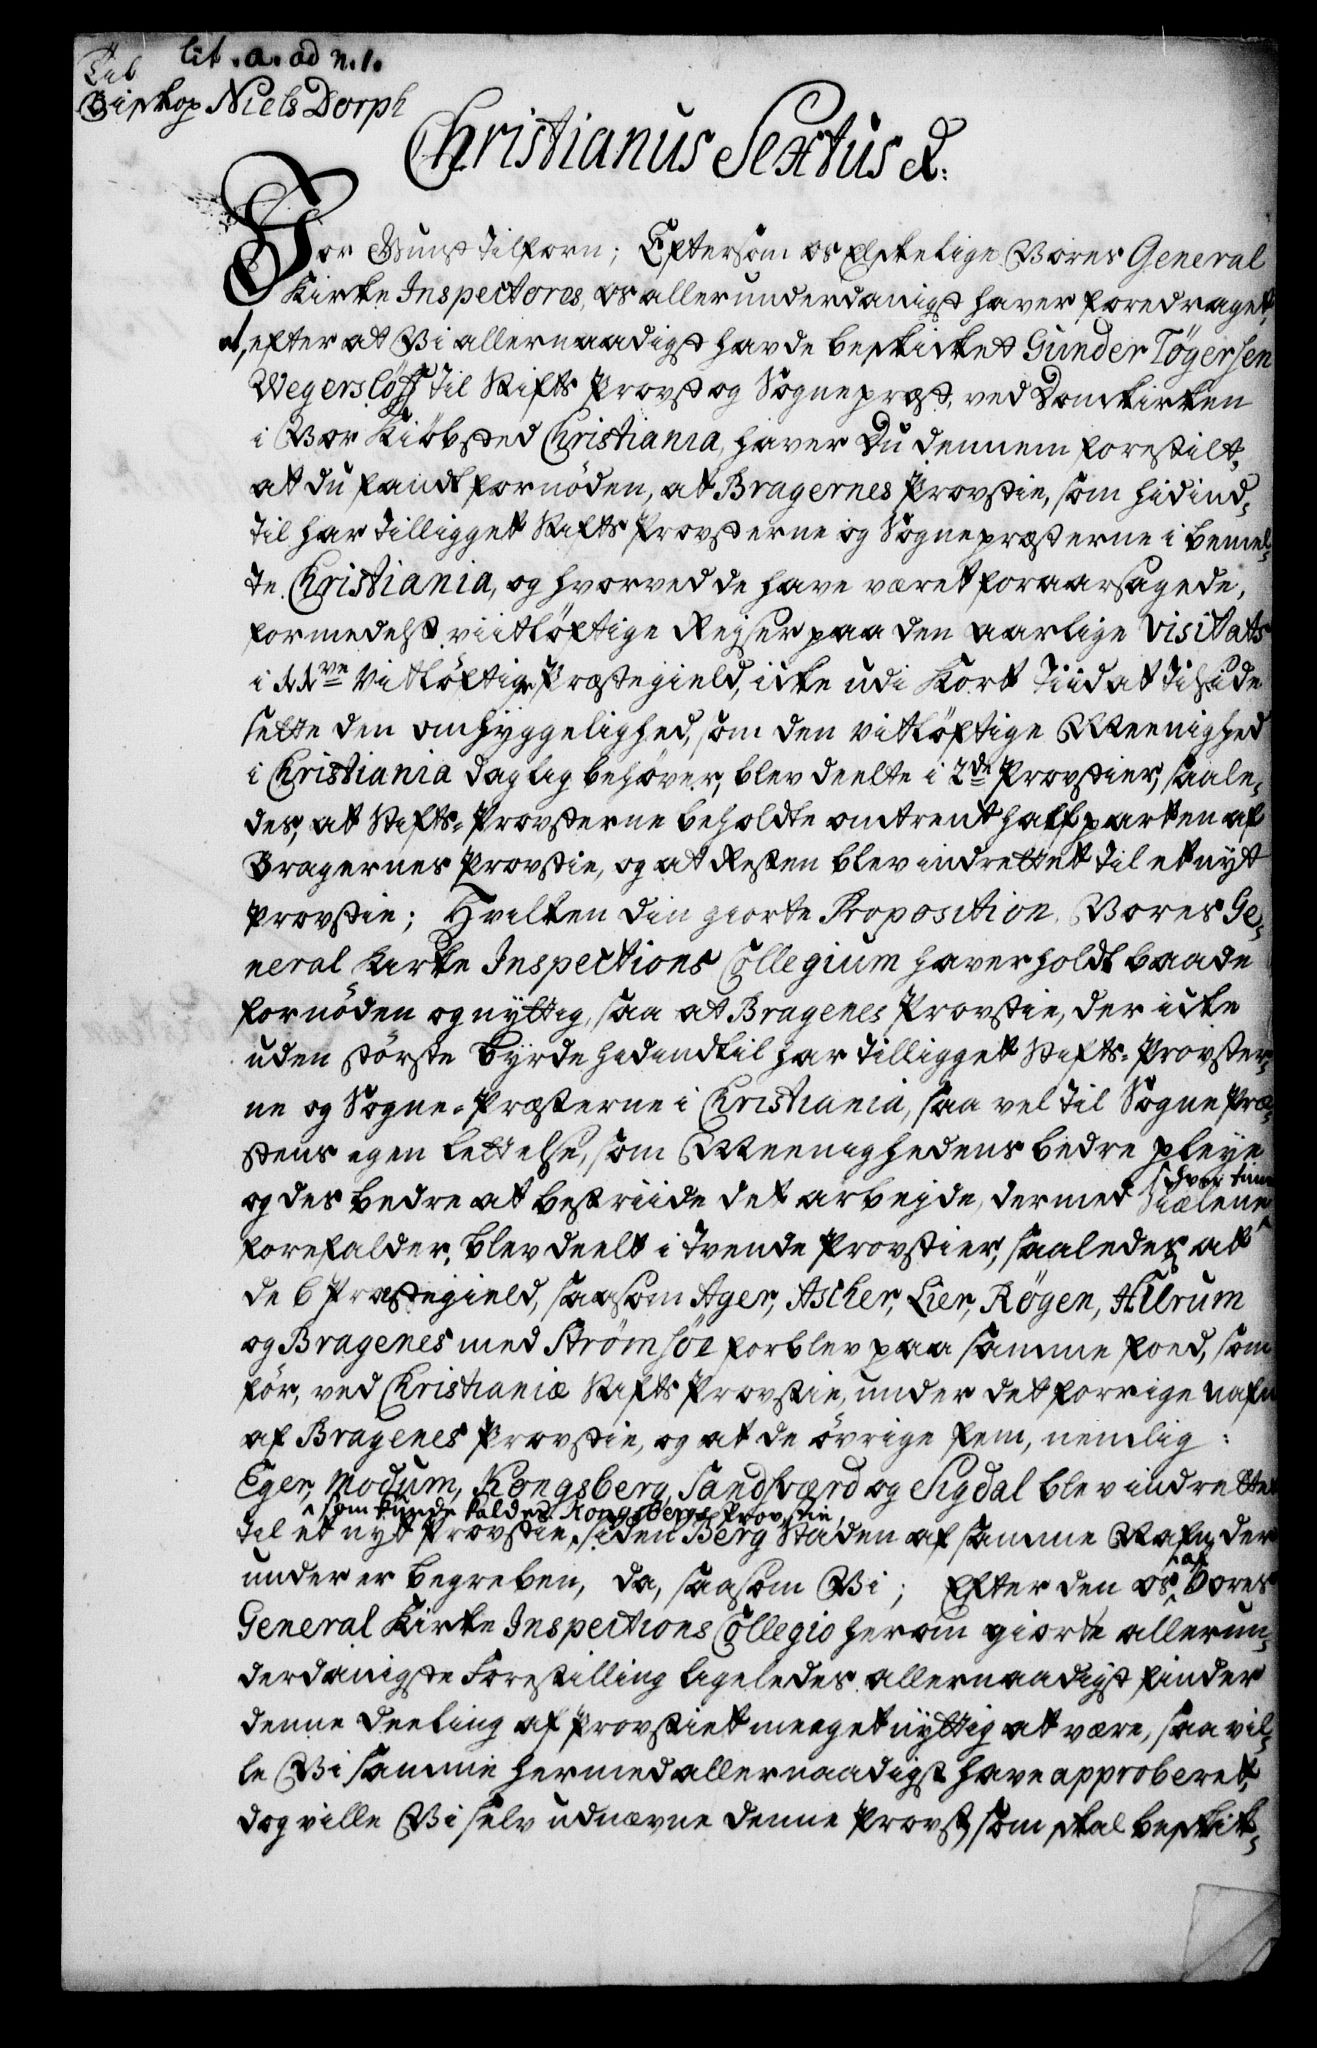 lit. a. ad n. 1.
Til
Biskop Niels Dorph
Christianus Sextus R:
Vor Gunst tilforn; Eftersom os Elskelige Vores General
Kirke Inspectores, os allerunderdanigst haver foredraget,
at, efter at Vi allernaadigst havde beskikket Gunder Tögersen
Wegerslöff til Stifts Provst og Sognepræst, ved Domkirken
i Vor Kiöbsted Christiania, haver Du dennem forestilt,
at du fandt fornöden, at Bragernes Provstie, som hidind-
til har tilligget Stifts Provsterne og Sognepræsterne i bemel-
te Christiania, og hvorved de have været foraarsagede,
formedelst viitlöftige Rejser paa den aarlige Visitats
i vitlöftige Præstegield, icke udi Kort Tiid at tilside
sette den omhyggelighed, som den vitlöftige Meenighed
i Christiania daglig behöver, blev deelte i 2de Provstier, saale-
des, at Stifts-Provsterne beholdte omtrent halfparten af
Bragernes Provstie, og at Resten blev indrettet til et nyt
Provstie; Hvilken din giorte Proposition, Vores Ge-
neral Kirke Inspections Collegium haver holdt baade
fornöden og nyttig, saa at Bragenes Provstie, der icke
uden störste Byrde hidindtil har tilligget Stifts-Provster-
ne og Sogne-Præsterne i Christiania, saa vel til Sogne Præ-
stens egen lettelse, som Meenighedens bedre pleye
og des bedre at bestriide det arbejde, dermed Siælene
forefalder, blev deelt i tvende Provstier, saaledes at
de 6 Præstegield, saasom Ager, Ascher, Lier, Rögen, Hurum
og Bragenes med Strömsöe forblev paa samme foed, som
för, ved Christianiæ Stifts Provstie, under det forrige nafn
af Bragenes Provstie, og at de övrige fem, nemlig:
Eger, Modum, Kongsberg, Sandsværd og Sigdal blev indrettet
som kunde kaldes Kongsbergs Provstie,
til et nyt Provstie, siden Berg Staden af samme Nafn der
under er begreben, da, saasom Vi; Efter den os af Vores
General Kirke Inspections Collegio herom giorte allerun-
derdanigste Forestilling ligeledes allernaadigst finder
denne deeling af Provstiet meeget nyttig at være, saa vil-
le Vi samme hermed allernaadigst have approberet,
dog ville Vi selv udnævne denne Provst, som skal beskik-